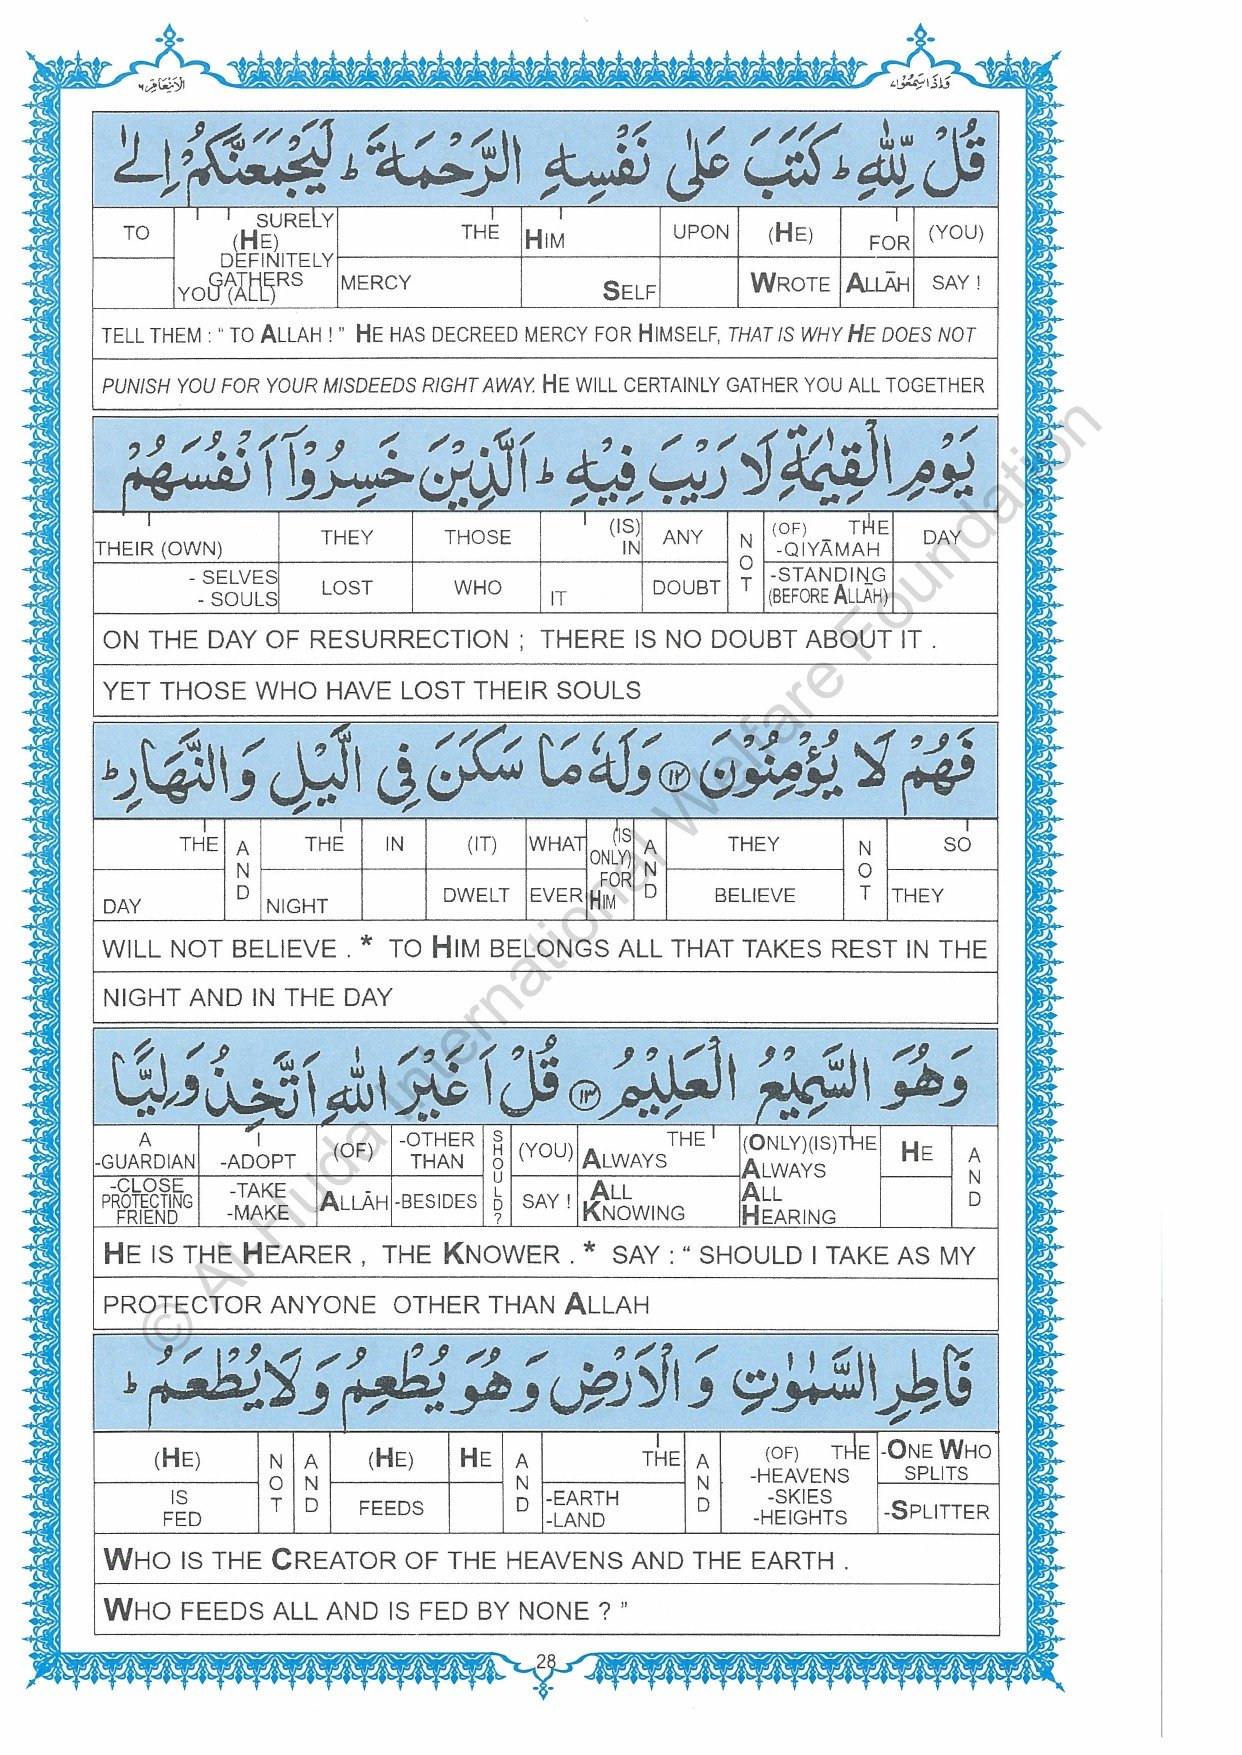 الانعام ٦
واذا سمعوا ٧
قُلْ لِّلّٰهِ ؕ كَتَبَ عَلٰى نَفْسِهِ الرَّحْمَةَ ؕ لَيَجْمَعَنَّكُمْ اِلٰى
TO SURELY (HE) DEFINITELY GATHERS YOU (ALL) THE MERCY HIM SELF UPON (HE) WROTE FOR ALLĀH (YOU) SAY !
TELL THEM : “ TO ALLAH ! ” HE HAS DECREED MERCY FOR HIMSELF, THAT IS WHY HE DOES NOT
PUNISH YOU FOR YOUR MISDEEDS RIGHT AWAY. HE WILL CERTAINLY GATHER YOU ALL TOGETHER
يَوْمِ الْقِيٰمَةِ لَا رَيْبَ فِيْهِ ؕ اَلَّذِيْنَ خَسِرُوْۤا اَنْفُسَهُمْ
THEIR (OWN) - SELVES - SOULS THEY LOST THOSE WHO (IS) IN IT ANY DOUBT NOT (OF) THE -QIYĀMAH -STANDING (BEFORE ALLĀH) DAY
ON THE DAY OF RESURRECTION ; THERE IS NO DOUBT ABOUT IT .
YET THOSE WHO HAVE LOST THEIR SOULS
فَهُمْ لَا يُؤْمِنُوْنَ ١٢ وَلَهٗ مَا سَكَنَ فِى الَّيْلِ وَالنَّهَارِ ؕ
THE DAY AND THE NIGHT IN (IT) DWELT WHAT EVER (IS ONLY) FOR HIM AND THEY BELIEVE NOT SO THEY
WILL NOT BELIEVE . * TO HIM BELONGS ALL THAT TAKES REST IN THE
NIGHT AND IN THE DAY
وَهُوَ السَّمِيْعُ الْعَلِيْمُ ١٣ قُلْ اَغَيْرَ اللّٰهِ اَتَّخِذُ وَلِيًّا
A -GUARDIAN -CLOSE PROTECTING FRIEND I -ADOPT -TAKE -MAKE (OF) ALLĀH -OTHER THAN -BESIDES SHOULD? (YOU) SAY ! THE ALWAYS ALL KNOWING (ONLY)(IS)THE ALWAYS ALL HEARING HE AND
HE IS THE HEARER , THE KNOWER . * SAY : “ SHOULD I TAKE AS MY
PROTECTOR ANYONE OTHER THAN ALLAH
فَاطِرِ السَّمٰوٰتِ وَالْاَرْضِ وَهُوَ يُطْعِمُ وَلَا يُطْعَمُ ؕ
(HE) IS FED NOT AND (HE) FEEDS HE AND THE -EARTH -LAND AND (OF) THE -HEAVENS -SKIES -HEIGHTS -ONE WHO SPLITS -SPLITTER
WHO IS THE CREATOR OF THE HEAVENS AND THE EARTH .
WHO FEEDS ALL AND IS FED BY NONE ? ”
28
© Al Huda International Welfare Foundation